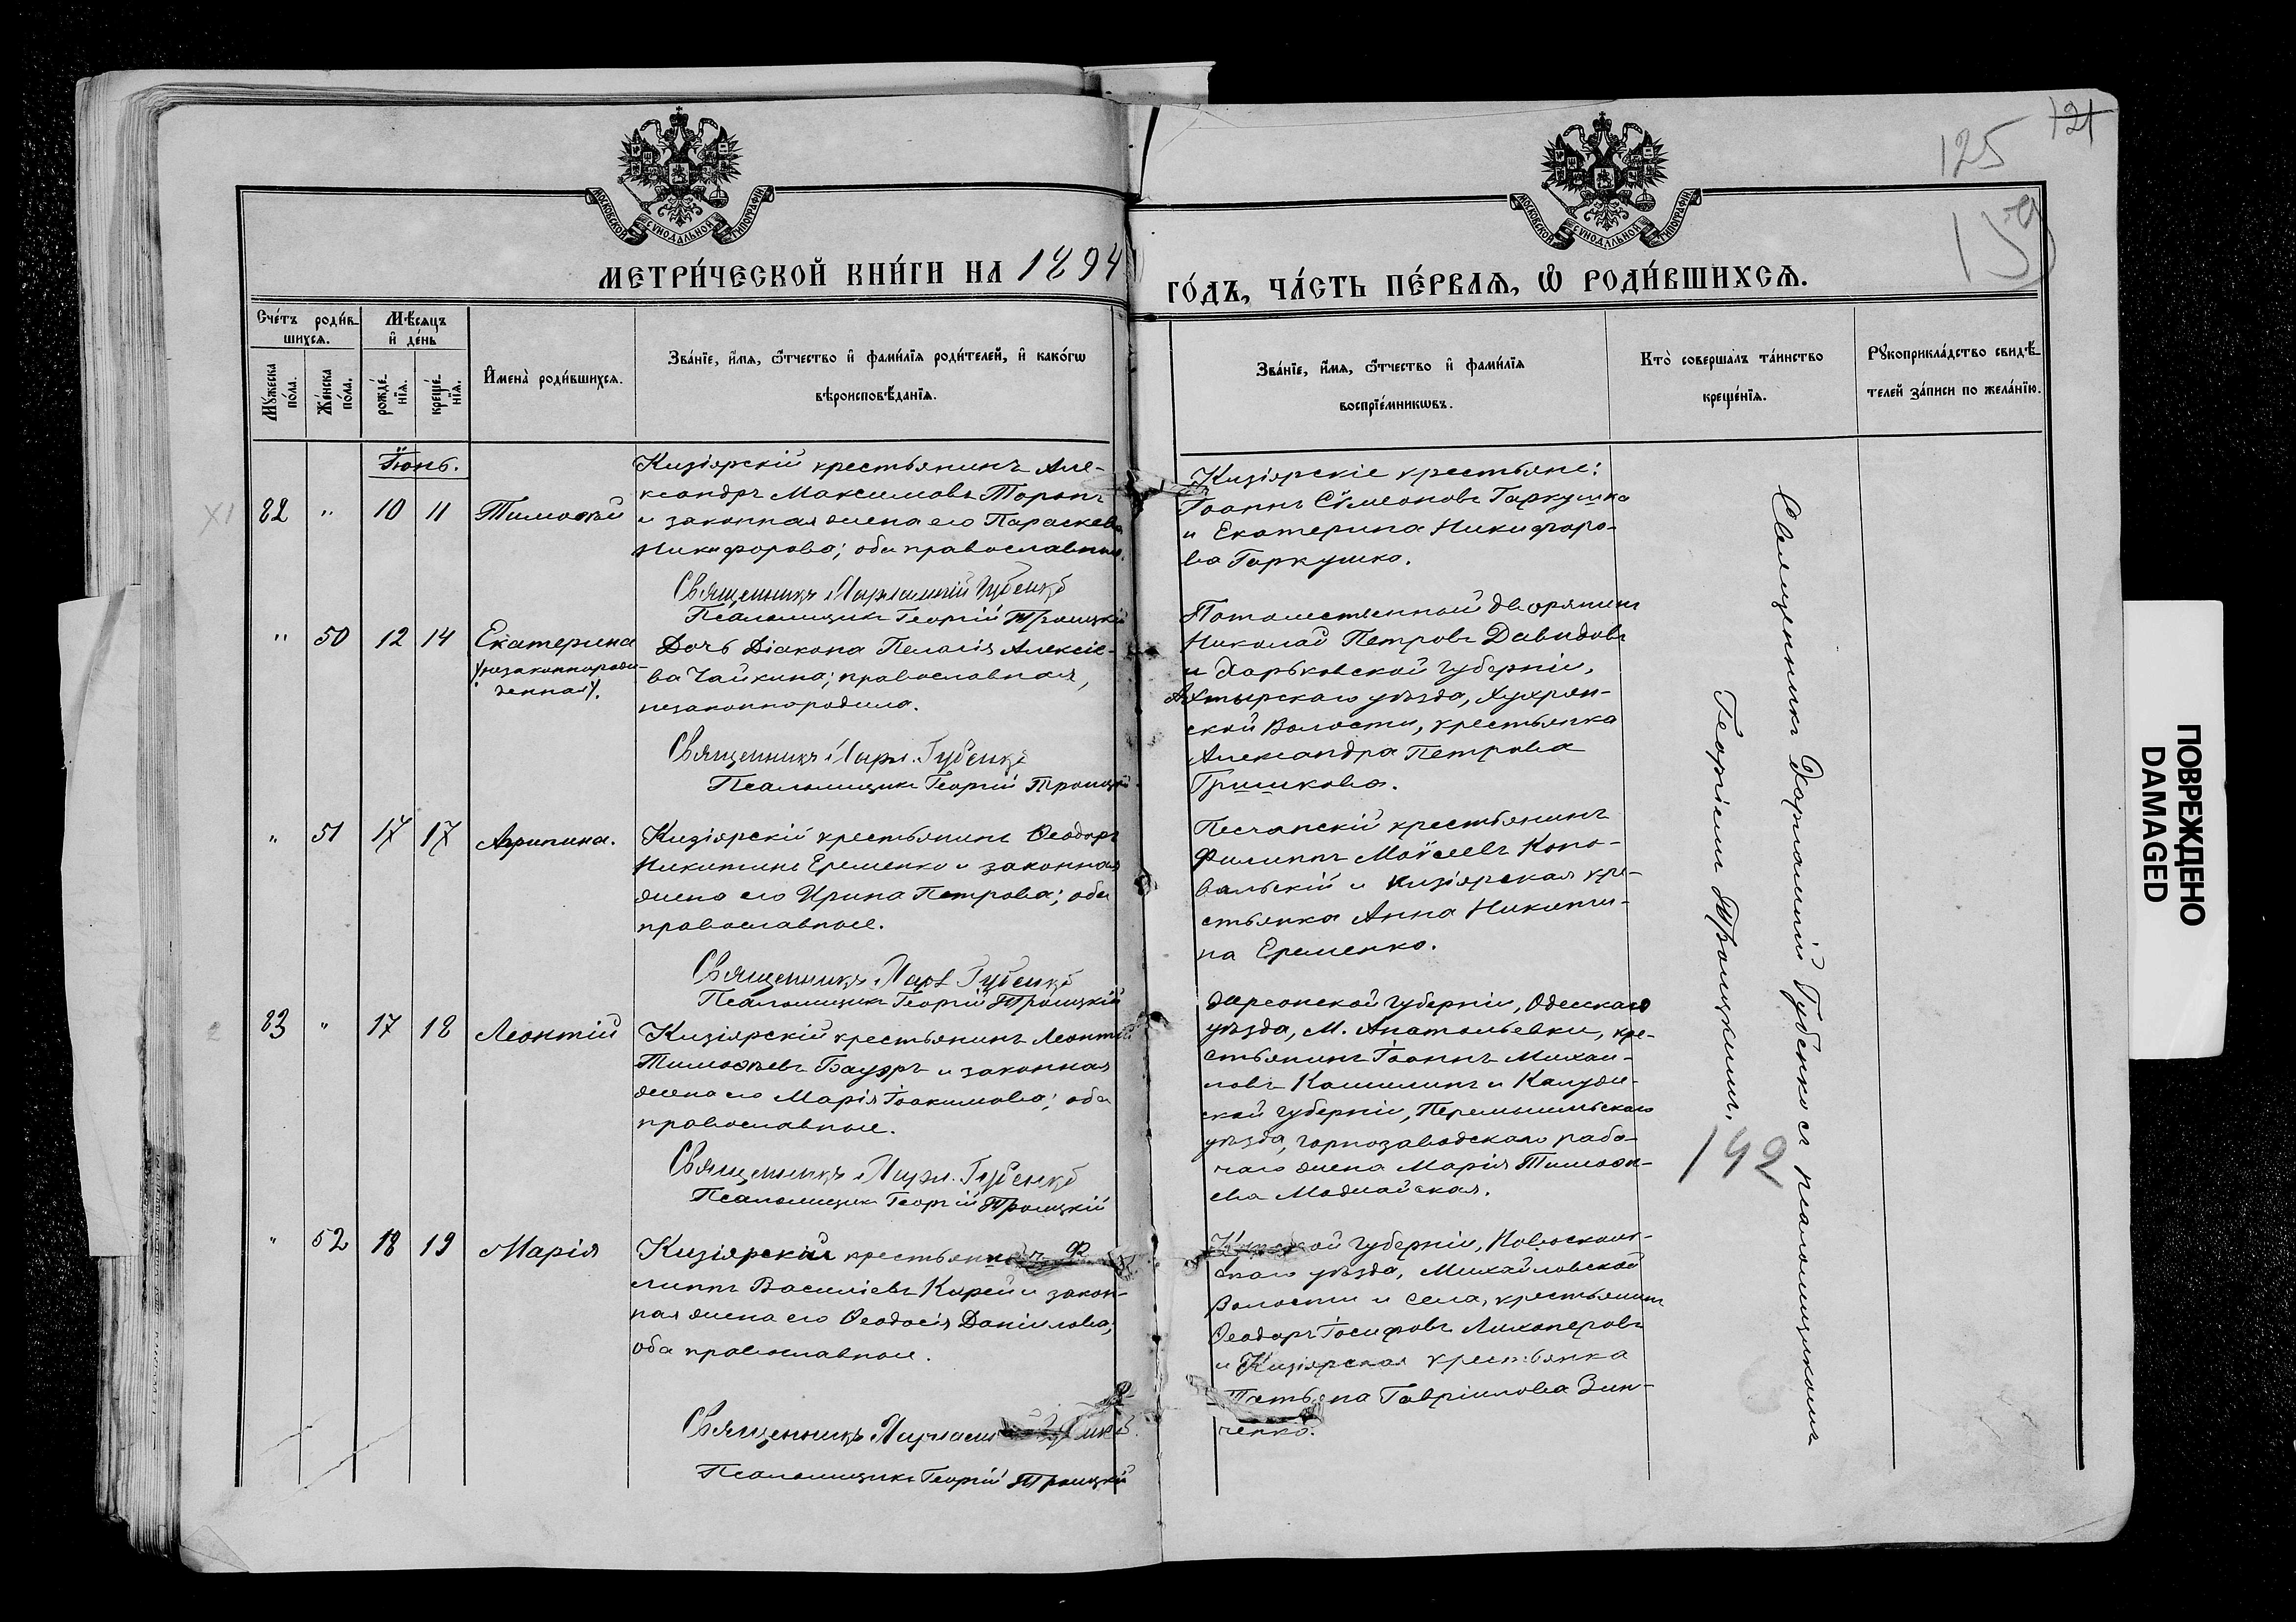 125
121
МОСКОВСКОЙ СѴНОДАЛЬНОЙ ТИПОГРАФІИ
МОСКОВСКОЙ СѴНОДАЛЬНОЙ ТИПОГРАФІИ
МЕТРИ́ЧЕСКОЙ КНИ́ГИ НА 1894
ГО́ДЪ, ЧА́СТЬ ПЕ́РВАѦ, Ѽ РОДИ́ВШИХСѦ.
Сче́тъ роди́в-
шихсѧ.
Мꙋ́жеска по́ла.
Же́нска по́ла.
Мѣ́сѧцъ
и҆ де́нь
рожде́-
нїѧ.
креще́-
нїѧ.
И҆мена̀ роди́вшихсѧ.
Зва́нїе, и҆́мѧ, ѻ҆́тчество и҆ фами́лїѧ роди́телей, и҆ како́гѡ
вѣроисповѣ́данїѧ.
Зва́нїе, и҆́мѧ, ѻ҆́тчество и҆ фами́лїѧ
воспрїе́мникѡвъ.
Кто̀ соверша́лъ та́инство
креще́нїѧ.
Рꙋкоприкла́дство свидѣ́-
телей за́писи по жела́нїю.
Іюнь.
82 " 10 11 Тимоѳей
Кизіярскій крестьянинъ Але-
ксандръ Максимовъ Торанъ
и законная жена его Параскева
Никифорова; оба православные.
Священникъ Харлампій Губенко
Псаломщикъ Георгій Троицкій
Кизіярскіе крестьяне:
Іоаннъ Сѵмеоновъ Гаркушка
и Екатерина Никифоро-
ва Гаркушко.
" 50 12 14 Екатерина
/незаконнорож-
денная/.
Дочь Діакона Пелагія Алексіе-
ва Чайкина; православная,
незаконнородила.
Священникъ Харл. Губенко
Псаломщикъ Георгій Троицкій
Потомственной дворянинъ
Николай Петровъ Давидовъ
и Харьковской губерніи,
Ахтырскаго уѣзда, Хухрян-
ской Волости, крестьянка
Александра Петрова
Гришкова.
" 51 17 17 Агрипина.
Кизіярскій крестьянинъ Ѳеодоръ
Никитинъ Еременко и законная
жена его Ирина Петрова; оба
православные.
Священникъ Харл. Губенко
Псаломщикъ Георгій Троицкій
Песчанскій крестьянинъ
Филиппъ Моѵсеевъ Коно-
вальскій и кизіярская кре-
стьянка Анна Никити-
на Еременко.
83 " 17 18 Леонтій
Кизіярскій крестьянинъ Леонтій
Тимоѳеевъ Бауръ и законная
жена его Марія Іоакимова; оба
православные.
Священникъ Харл. Губенко
Псаломщикъ Георгій Троицкій
Херсонской губерніи, Одесскаго
уѣзда, М. Анатольевки, кре-
стьянинъ Іоаннъ Михаи-
ловъ Кашилинъ и Калуж-
ской губерніи, Перемышльскаго
уѣзда, горнозаводскаго рабо-
чаго жена Марія Тимоѳе-
ева
" 52 18 19 Марія
Кизіярскій крестьянинъ Фи-
липпъ Василіевъ Карей и закон-
ная жена его Ѳеодосія Даніилова;
оба православные.
Священникъ Харлампій Губенко
Псаломщикъ Георгій Троицкій
Курской губерніи, Новооскол-
скаго уѣзда, Михайловской
Волости и села, крестьянинъ
Ѳеодоръ Іосифовъ Лихоперовъ
и Кизіярская крестьянка
Татьяна Гавріилова Зин-
ченко.
Священникъ Харлампій Губенко съ псаломщикомъ
Георгіемъ Троицкимъ.
142
ПОВРЕЖДЕНО
DAMAGED